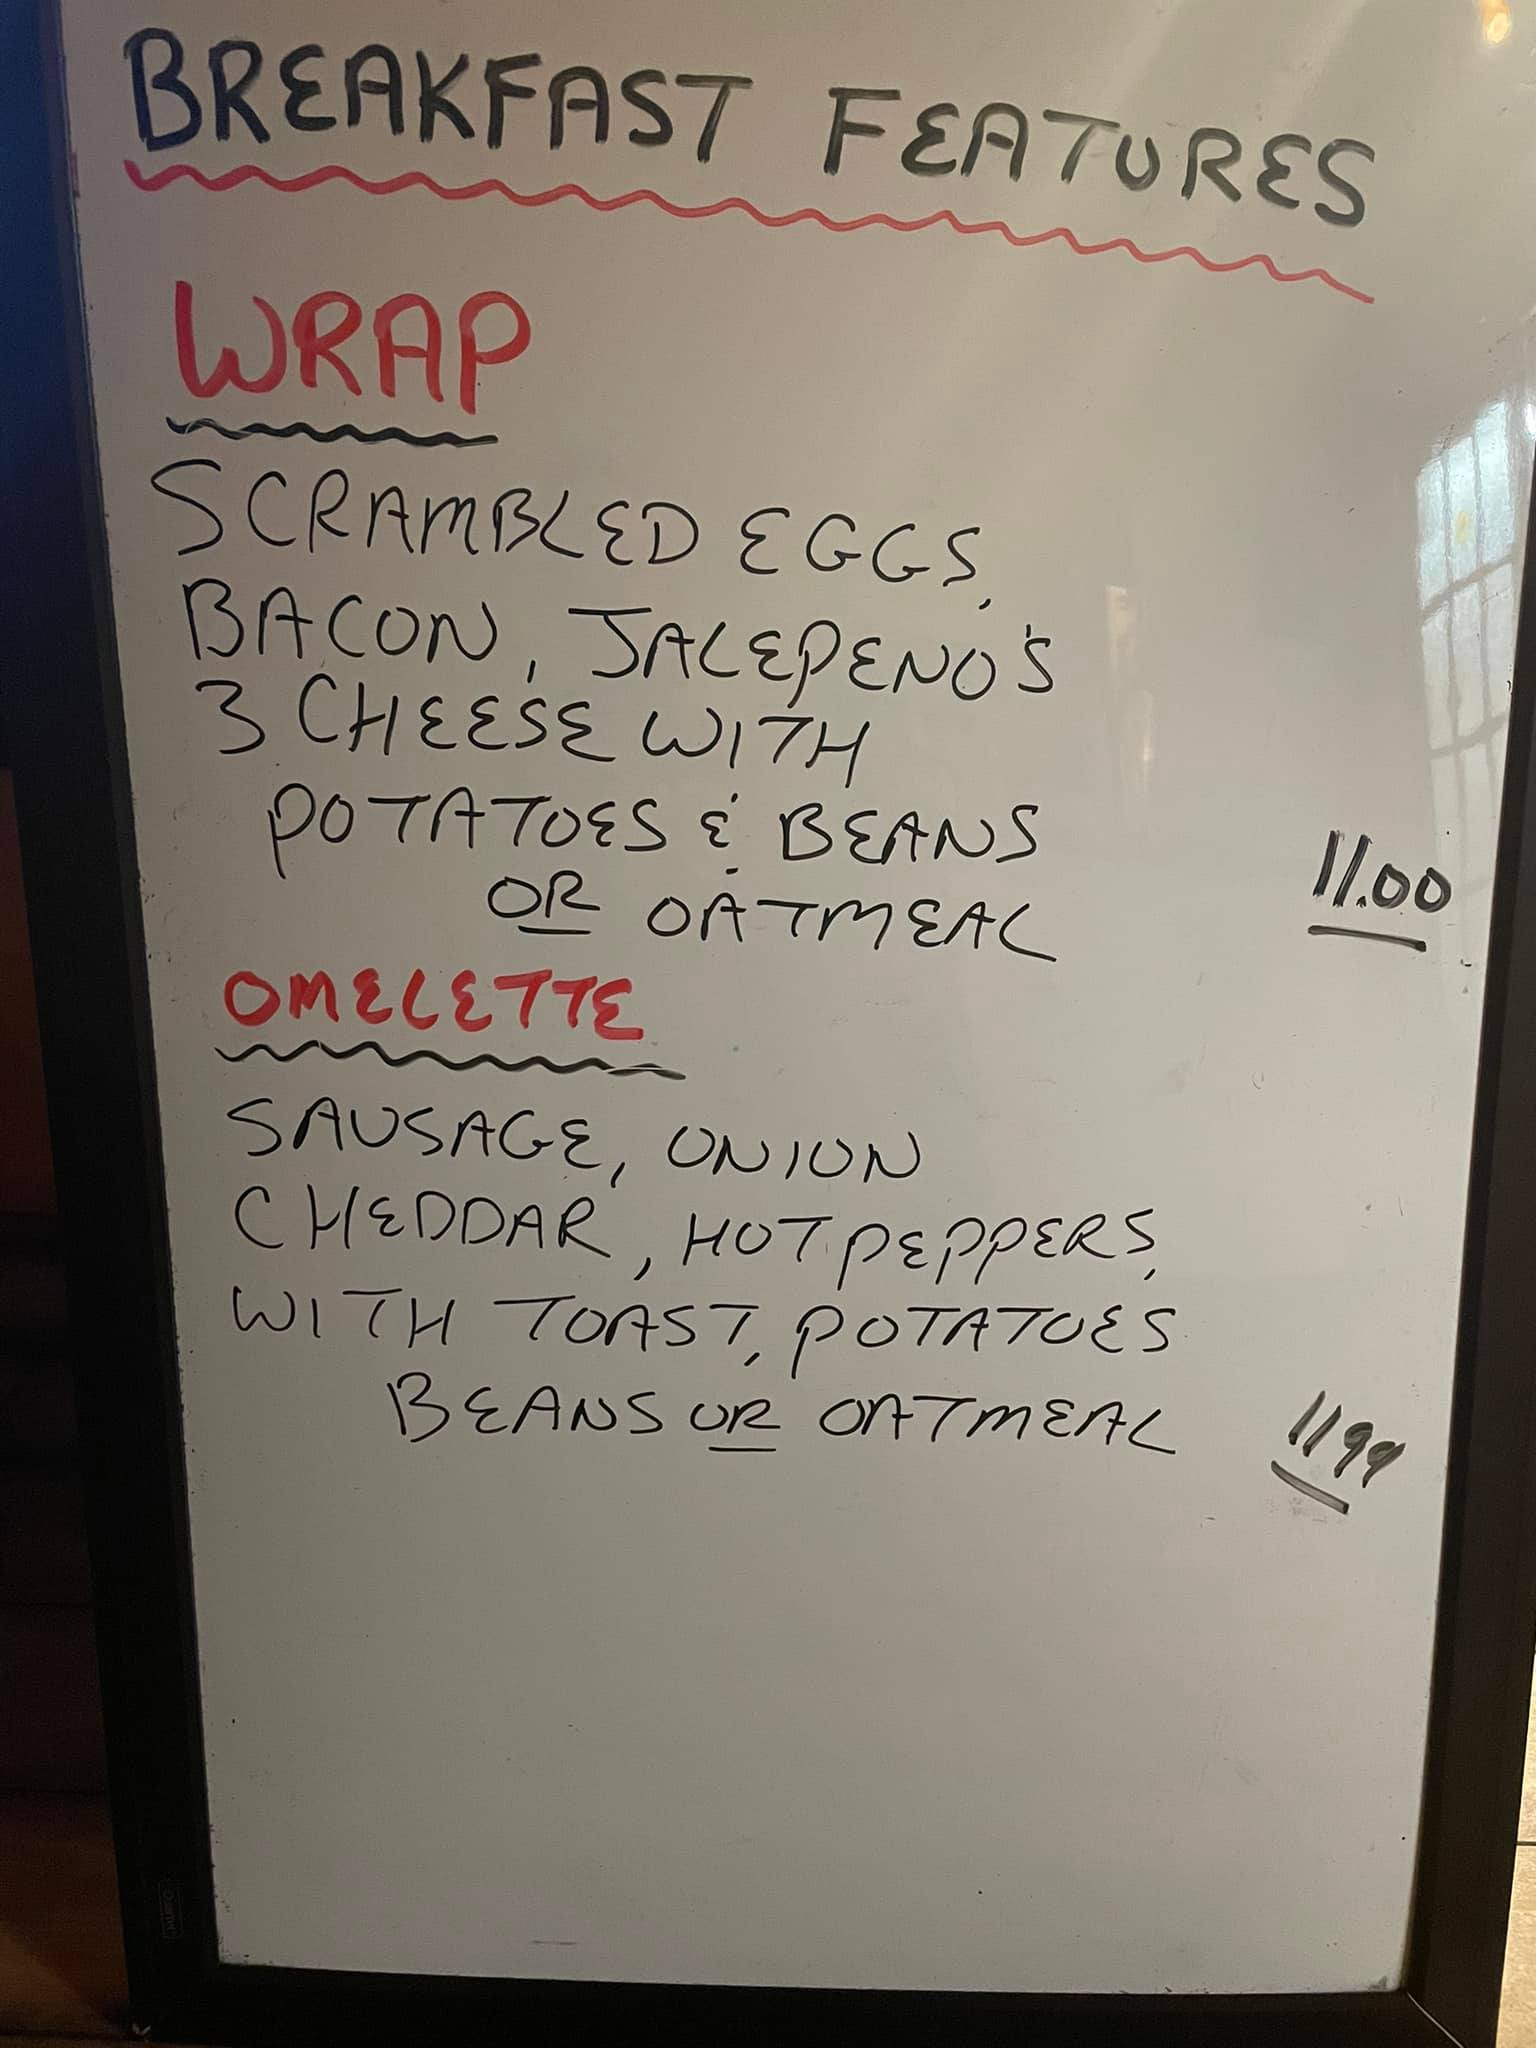 BREAKFAST FEATURES
WRAP
SCRAMBLED EGGS,
BACON, JALEPENO'S
3 CHEESE WITH
POTATOES & BEANS
OR OATMEAL
11.00
OMELETTE
SAUSAGE, ONION
CHEDDAR, HOT PEPPERS,
WITH TOAST, POTATOES
BEANS OR OATMEAL
11 99